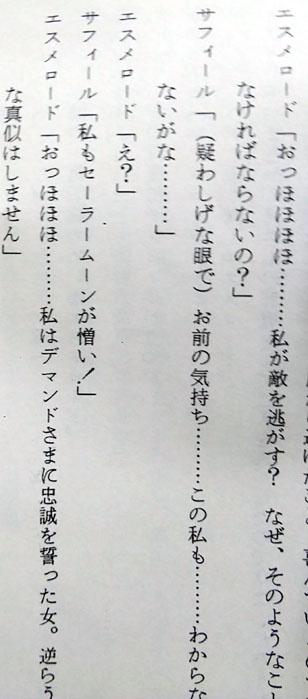 エスメロード「おっほほほ………私が敵を逃がす？　なぜ、そのようなこと
なければならないの？」
サフィール「（疑わしげな眼で）お前の気持ち………この私も………わからな
ないがな………」
エスメロード「え？」
サフィール「私もセーラームーンが憎い！」
エスメロード「おっほほほ………私はデマンドさまに忠誠を誓った女。逆らう
な真似はしません」